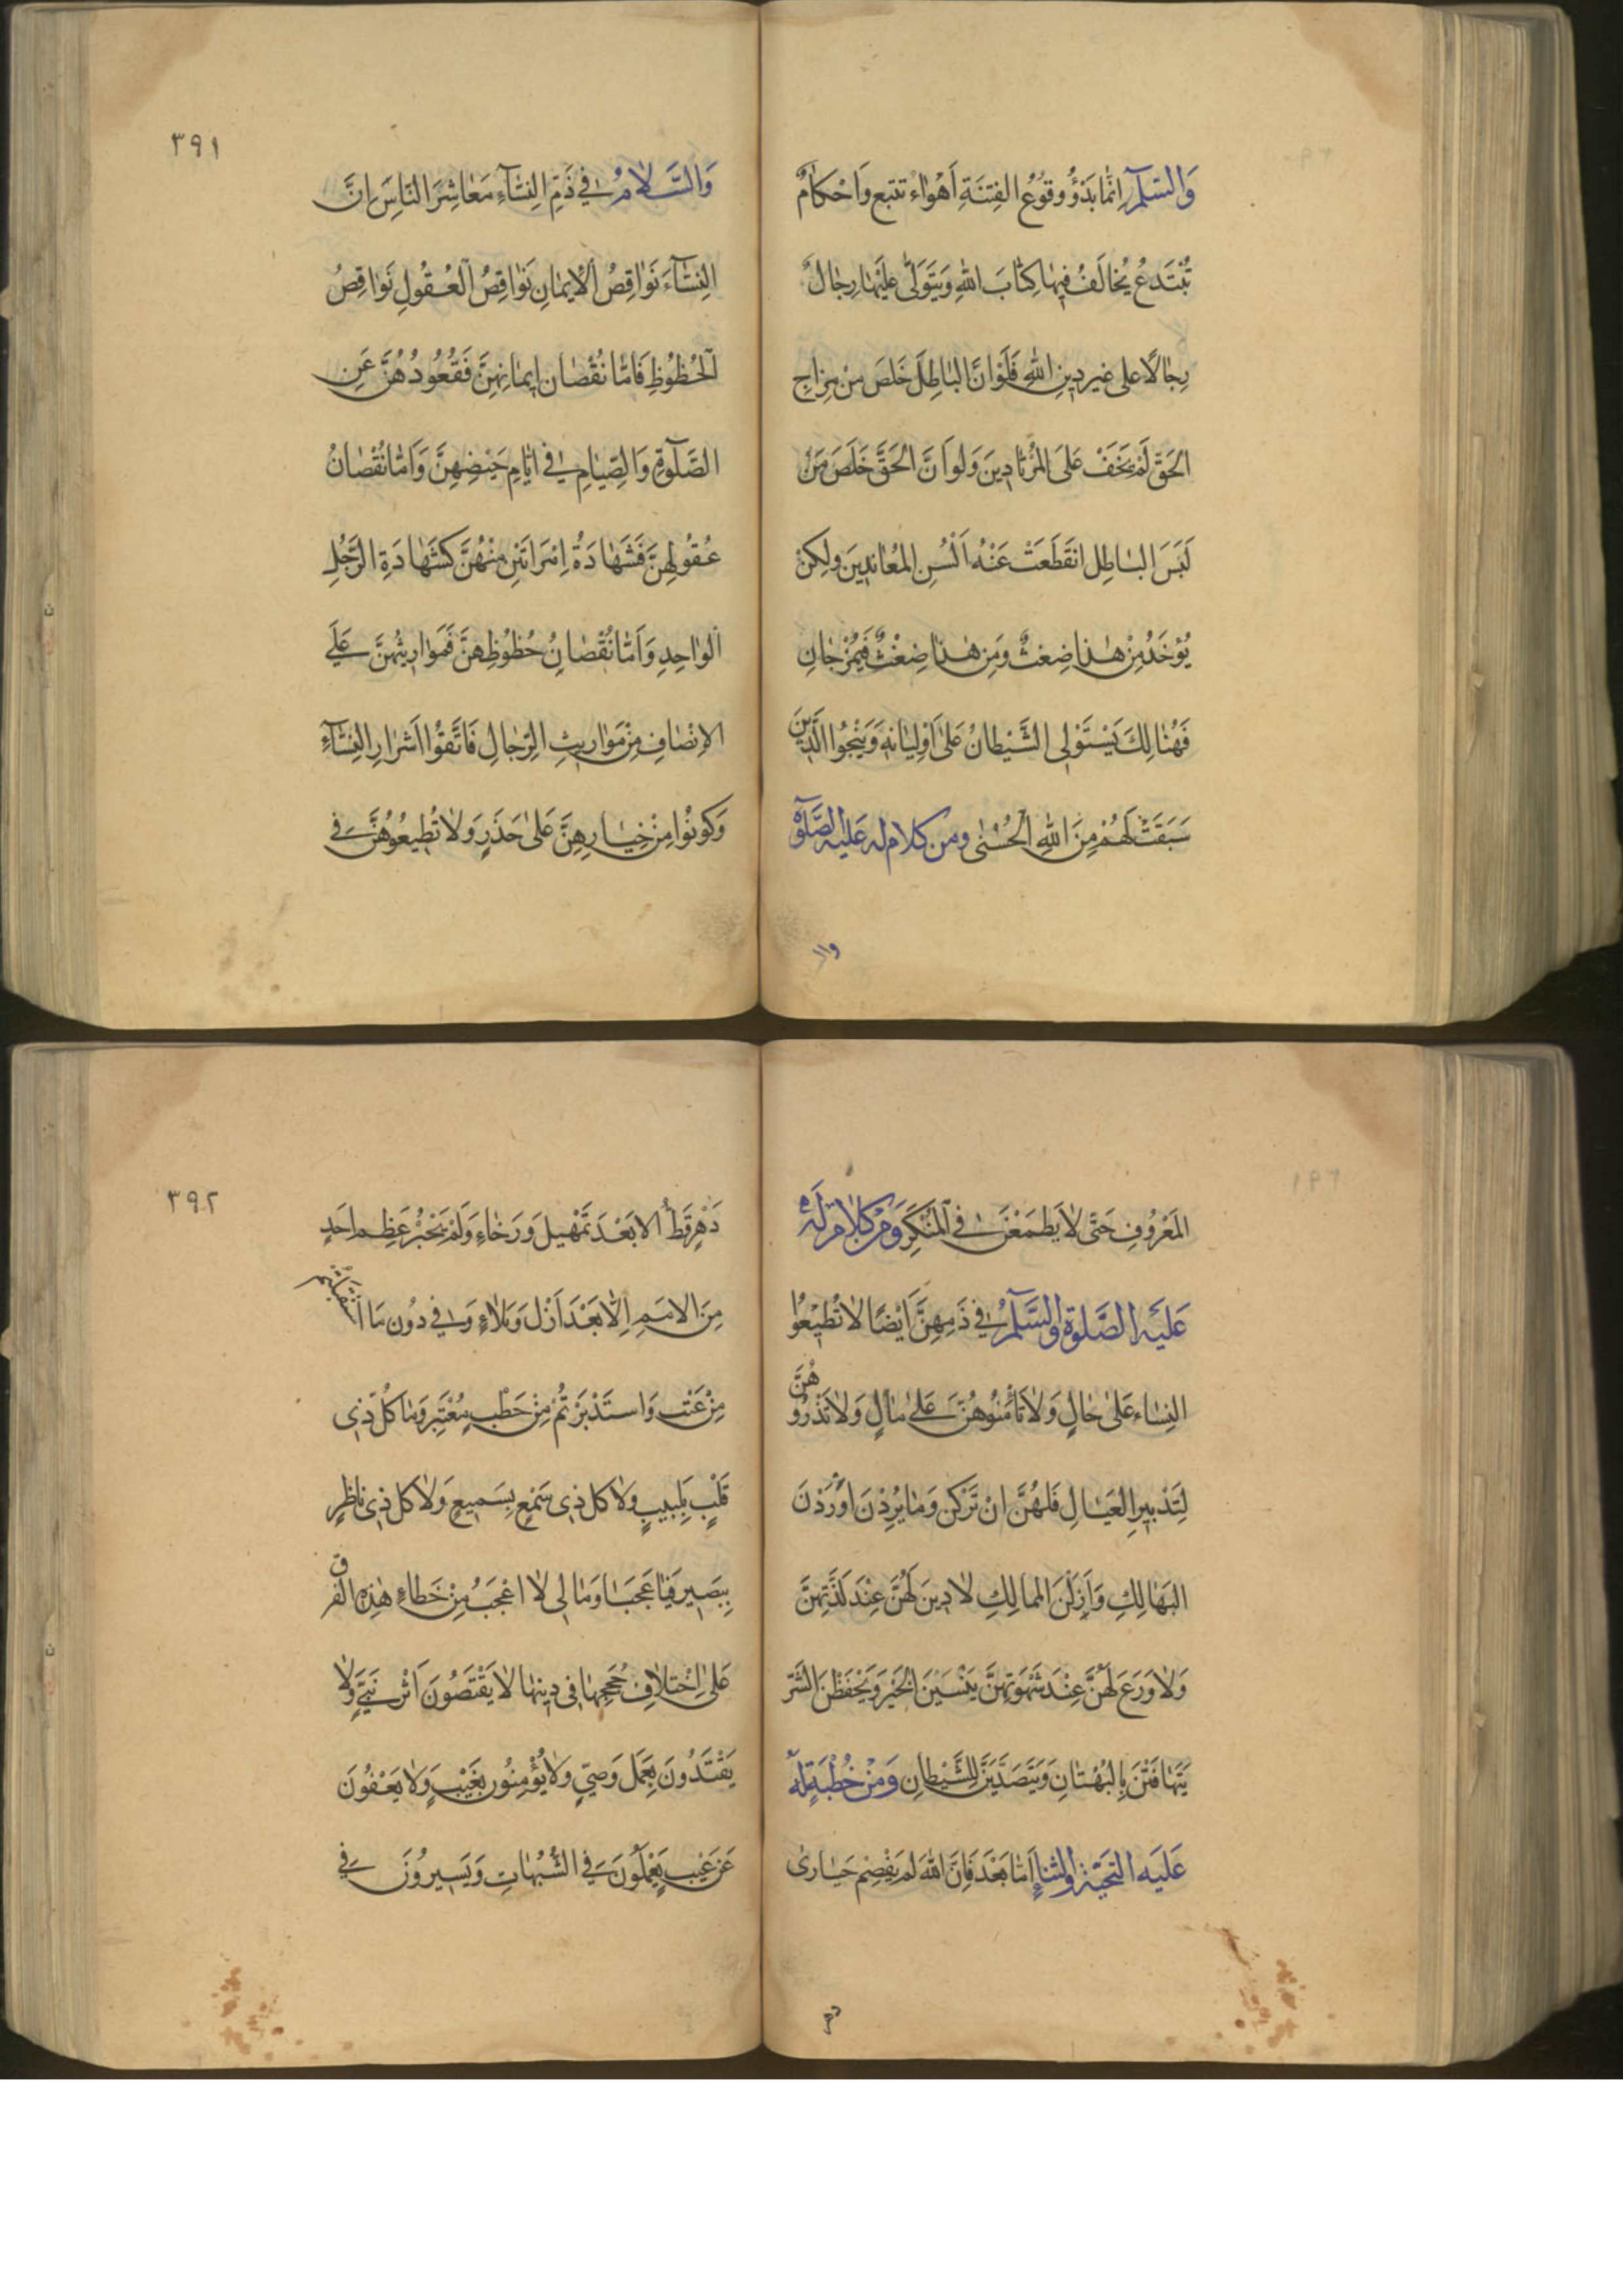 وَالسَّلٰمُ اِنَّمَا بَدْؤُ وقُوُعُ الفِتنَةِ اَهْوٰاء تتبع وَاَحْكامٌ
تُبْتَدعُ يُخالَفُ فيهٰا كِتٰابَ اللهِ وَيَتَوَلّى عَلَيْهٰا رِجٰالٌ
رِجٰالًا على غير دينِ اللهِ فَلَوْ اَنَّ البٰاطِلَ خَلَصَ مِنْ مِزاجِ
الحَقّ لَمْ يَخَفَ عَلَى المُرْتادينَ وَلو اَنَّ الحَقَّ خَلَصَ مِنْ
لَبَسَ البٰاطِل انقَطَعَتْ عَنْهُ اَلْسُن المُعٰاندينَ ولكِنْ
يُؤخَذُ مِنْ هٰذا ضِغثٌ وَمِن هٰذا ضِغْثٌ فَيُمْزَجٰانِ
فَهُنٰالِكَ يَسْتَوْلِى الشَّيْطانُ عَلىٰ اَوْلِيٰائه وَيَنْجُوا الَّذينَ
سَبَقَتْ لَهُمْ مِنَ اللهِ الْحُسْنٰى ومن كلام له عَليه الصَّلوٰة
وال
٣٩١
وَالسَّلامُ فى ذَمّ النِسٰآءِ مَعٰاشِرَ النٰاسِ اِنَّ
النِسٰآءَ نَوٰاقِصُ الْايمٰانِ نَوٰاقِصُ الْعُقُولِ نَوٰاقِصُ
الْحُظُوظِ فَامّٰا نُقْصٰان ايمٰانِهِنَّ فَقُعُودُهُنَّ عَنِ
الصَّلوٰةِ وَالصِّيٰامِ فى ايّٰامِ حَيْضِهِنَّ وَاَمّٰا نُقْصٰانُ
عُقُولِهِنَّ فَشَهٰادَةُ اِمْرَاَتَيْنِ مِنْهُنَّ كَشَهٰادَةِ الرَّجُلِ
الْوٰاحِدِ وَاَمّٰا نُقْصٰانُ حُظُوظِهِنَّ فَمَوٰاريثُهُنَّ عَلَى
الاِنْصٰافِ مِنْ مَوٰاريثِ الرِّجٰالِ فَاتَّقُوْا اَشْرٰارِ النِسٰآءِ
وَكونُوْا مِنْ خِيٰارِهِنَّ عَلىٰ حَذَرٍ وَلا تُطيعُوُهُنَّ فى
المَعْرُوفِ حَتّى لاٰ يَطمَعْنَ فى المُنكَرِ وَمِنْ كَلاٰم لَه
عَليَه الصَّلوٰة وَالسَّلٰمُ فى ذَمِهِنَّ اَيْضًا لاٰ تُطيْعُوْا
النِسٰاء عَلىٰ حٰالٍ وَلاٰ تَأْمَنُوُهُنَّ عَلىٰ مٰالٍ وَلاٰ تَذَرُوُ
هُنَّ
لِتَدْبيرِ العيٰالِ فَلهُنَّ انْ تَرْكن وَمٰا يُرِدْنَ اَوْرَدْنَ
البَهٰالِكِ وَاَزَلنَ الممالِكِ لاٰ دِينَ لَهُنَّ عِنْدَ لَذَّتِهِنَّ
وَلاٰ وَرَعَ لَهُنَّ عِنْدَ شَهْوَتِهِنَّ يَنْسَيْنَ الخَيْرَ وَيَحْفَظْنَ الشَّرّ
يَتَهٰافَتْنَ بِالبُهْتٰانِ وَيَتَصَدَّيْنَ لِلشَّيْطانِ وَمِنْ خُطْبَةٍ لَه
عَلَيَه التَحيَّة وَالثناءِ اَمّٰا بَعْدَ فَاِنَّ اللهَ لم يَقْصِمْ جَبٰارى
دهر
٣٩٢
دَهْرٍ قَطُّ الا بَعْدَ تَمْهيل وَرَخٰاءٍ وَلَمْ يَجْبُرْ عَظِم احَدٍ
مِنَ الامَمِ اِلّٰا بَعْدَ اَزْل وَبَلاٰءٍ وَفى دُون مٰا اسْتقبلتم
مِنْ عَتْب وَاستَدْبَرْتُمْ مِنْ خَطْبٍ مُعْتَبِر وَمٰا كُلّ ذى
قَلْبٍ بِلَبيبٍ ولاٰ كل ذى سَمْعٍ بِسَميعٍ وَلاٰ كل ذى ناظِرٍ
بِبَصيرٍ فَيٰا عَجَبٰا وَمٰا لى لاٰ اعْجَبُ مِنْ خَطاءِ هٰذِهِ الفرق
عَلىٰ اِخْتلاٰفِ حُجَجِهٰا فى دينِهٰا لاٰ يَقْتَصُونَ اَثْر نَبِىٍّ وَلاٰ
يَقْتَدُونَ بِعَمَل وَصِىٍّ وَلاٰ يُؤْمِنُون بِغَيْبٍ وَلاٰ يَعْفُونَ
عَنْ عَيْبٍ يَعْمَلُونَ فى الشُبُهٰاتِ وَيَسيرُوُنَ فى